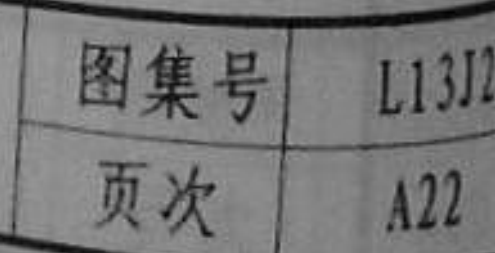 图集号 L13J2
页次 A22